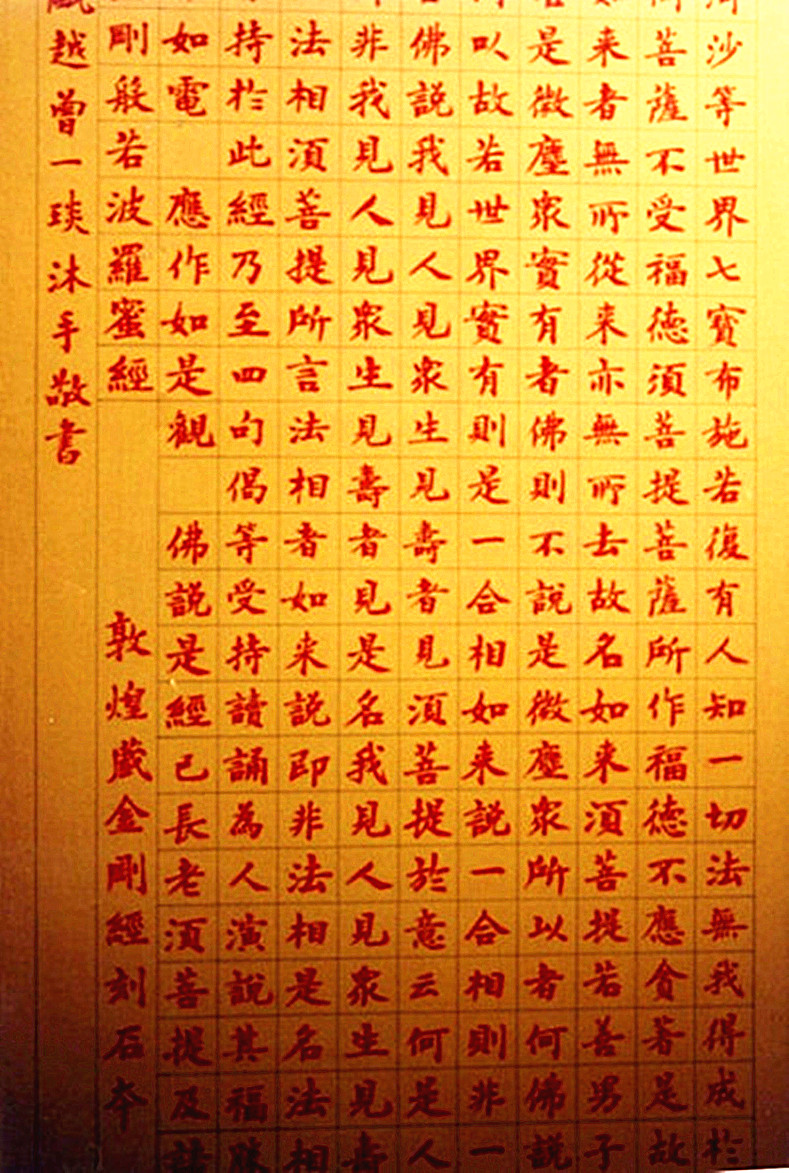 沙等世界七寶布施若復有人知一切法無我得成於
菩薩不受福德須菩提菩薩所作福德不應貪著是故
来者無所從来亦無所去故名如来須菩提若善男子
是微塵衆實有者佛則不說是微塵衆所以者何佛說
以故若世界實有則是一合相如来說一合相則非一
佛說我見人見衆生見壽者見須菩提於意云何是人
非我見人見衆生見壽者見是名我見人見衆生見壽
法相須菩提所言法相者如来說即非法相是名法相
持於此經乃至四句偈等受持讀誦為人演說其福勝
如電 應作如是觀 佛說是經已長老須菩提及諸
剛般若波羅蜜經 敦煌藏金剛經刻石本
越曾一琰沐手敬書